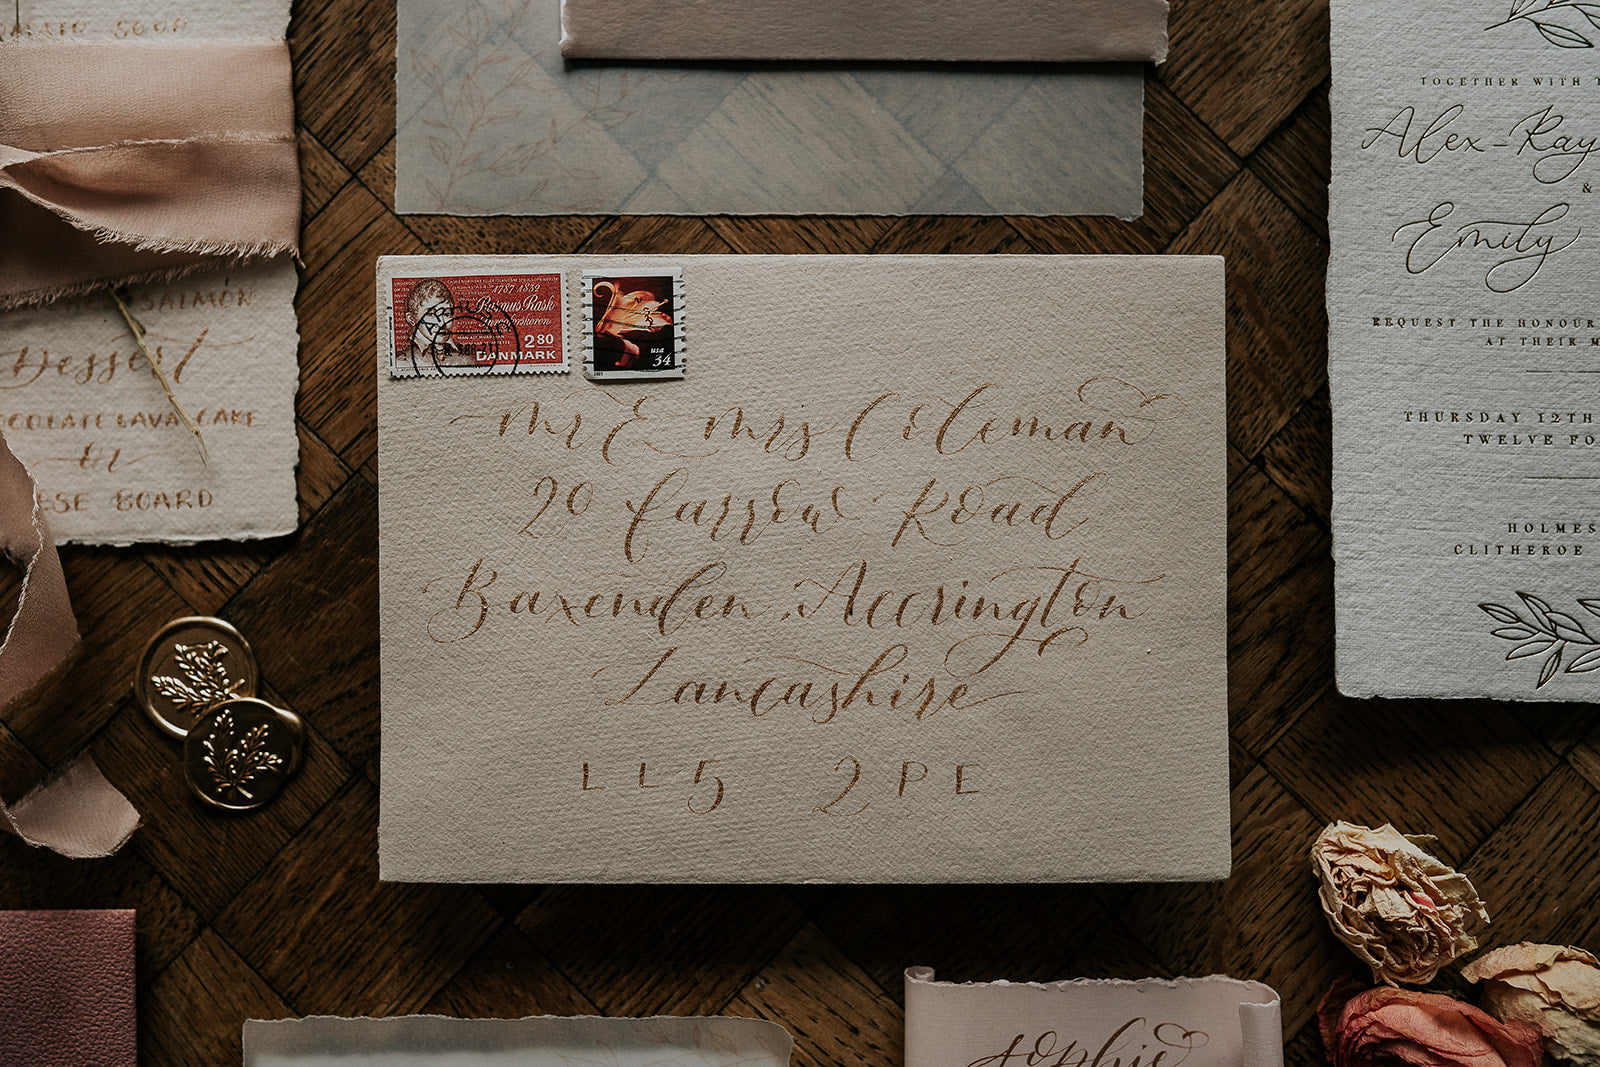 SOUP
SALMON
Dessert
LAVA CAKE
or
BOARD
1787-1832
Rasmus Rask
2 80
DANMARK
usa
34
Mr & Mrs Coleman
20 Farrow Road
Baxenden, Accrington
Lancashire
LL5 2PE
TOGETHER WITH
Alex-Ray
&
Emily
REQUEST THE HONOUR
AT THEIR
THURSDAY 12TH
TWELVE
HOLMES
CLITHEROE
Sophie